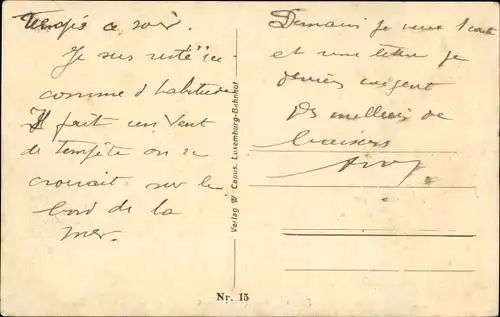 ce soir.
Je suis resté ici
comme d habitude
Il fait un Vent
de tempête on se
croirait sur le
bord de la
mer.
Verlag W. Capus, Luxemburg-Bahnhof
Demain je veux
et une lettre je
urgent
de
baisers
Nr. 15